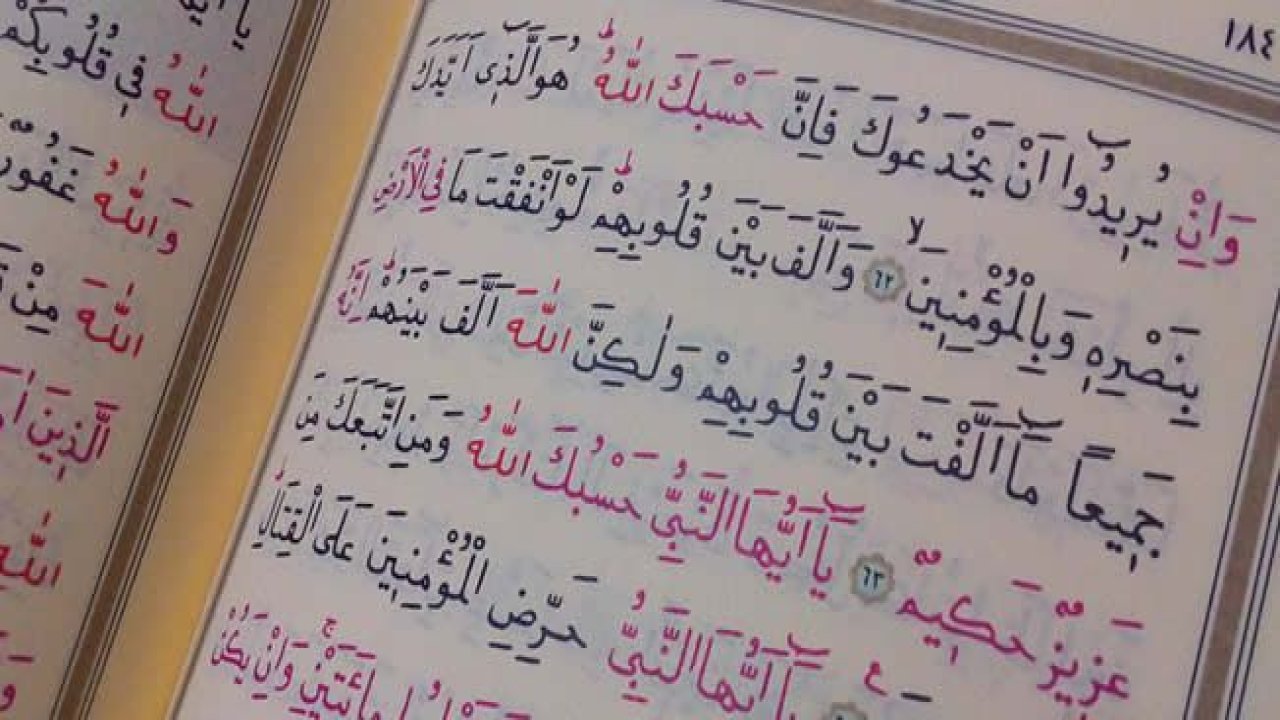 ١٨٤
وَاِنْ يُرِيدُوا اَنْ يَخْدَعُوكَ فَاِنَّ حَسْبَكَ اللّٰهُ هُوَ الَّذِى اَيَّدَكَ
بِنَصْرِهِ وَبِالْمُؤْمِنِينَ ٦٢ وَاَلَّفَ بَيْنَ قُلُوبِهِمْ لَوْ اَنْفَقْتَ مَا فِي الْاَرْضِ
جَمِيعًا مَا اَلَّفْتَ بَيْنَ قُلُوبِهِمْ وَلٰكِنَّ اللّٰهَ اَلَّفَ بَيْنَهُمْ اِنَّهُ
عَزِيزٌ حَكِيمٌ ٦٣ يَا اَيُّهَا النَّبِيُّ حَسْبُكَ اللّٰهُ وَمَنِ اتَّبَعَكَ مِنَ
يَا اَيُّهَا النَّبِيُّ حَرِّضِ الْمُؤْمِنِينَ عَلَى الْقِتَالِ
مِائَتَيْنِ وَاِنْ يَكُنْ
اللّٰهُ فِي قُلُوبِكُمْ
وَاللّٰهُ غَفُورٌ
اللّٰهَ مِنْ
الَّذِينَ
اللّٰهِ